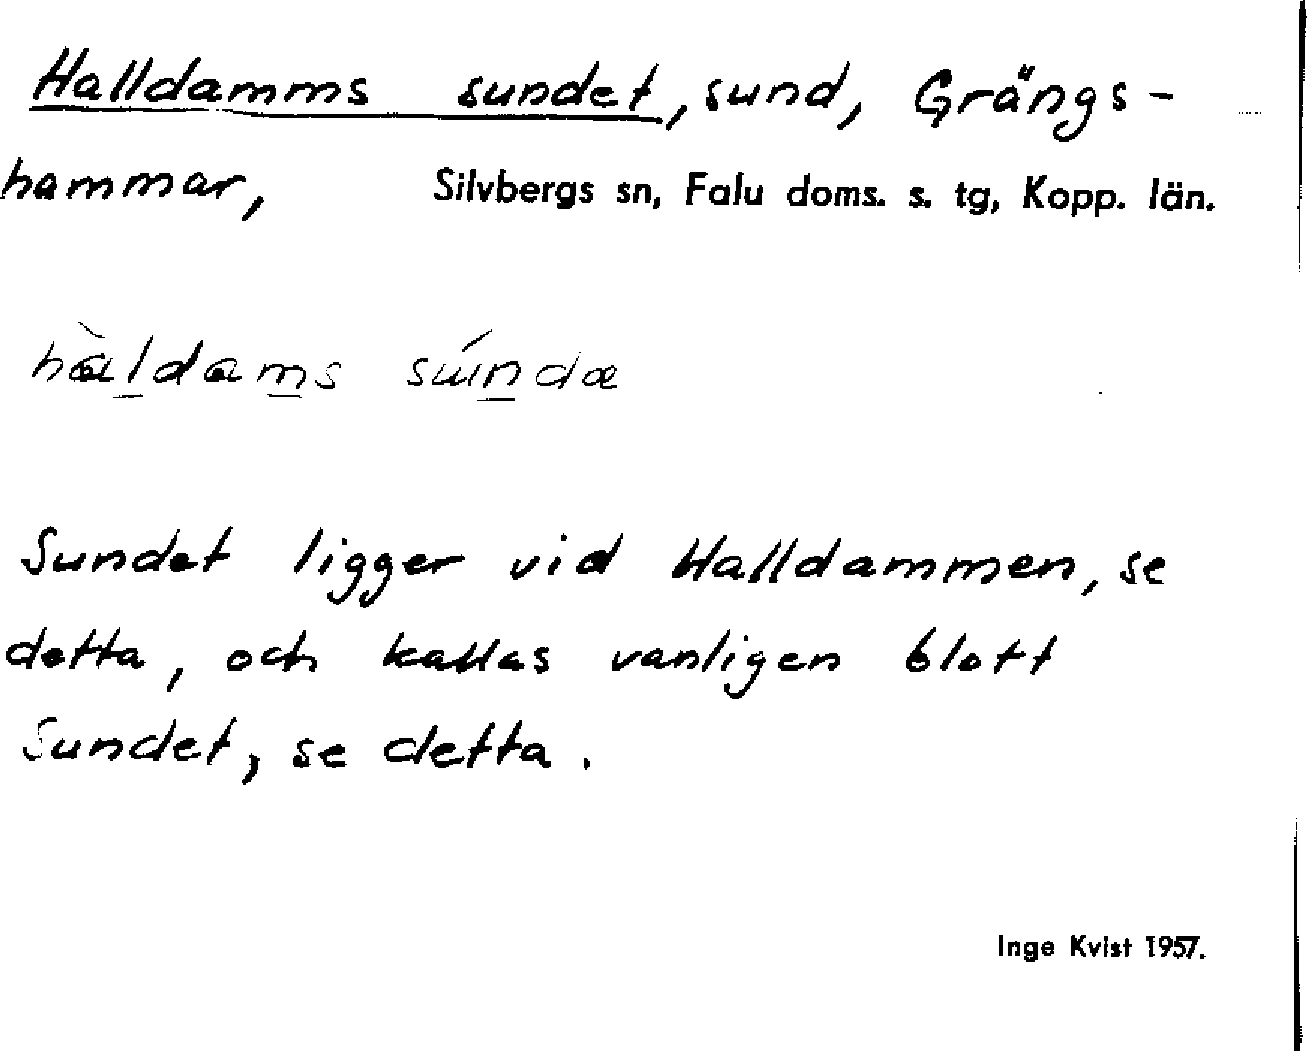 Halldamms sundet, sund, Grängs-
hammar, Silvbergs sn, Falu doms. s. tg, Kopp. län.
hàldams súndæ
Sundet ligger vid Halldammen, se
detta, och kallas vanligen blott
Sundet, se detta.
Inge Kvist 1957.